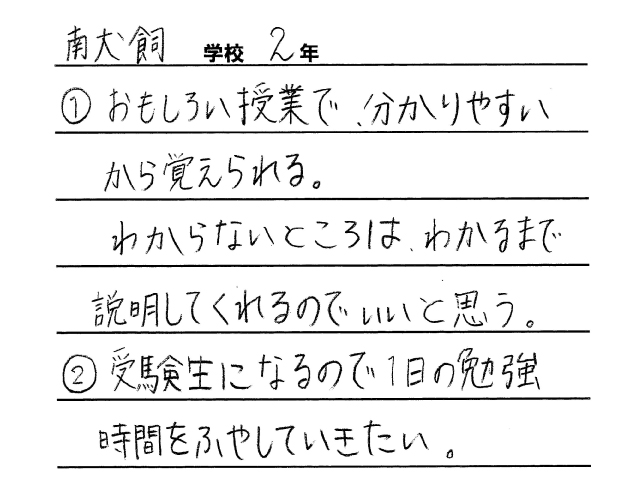 南犬飼 学校 2年
① おもしろい授業で、分かりやすい
から覚えられる。
わからないところは、わかるまで
説明してくれるのでいいと思う。
② 受験生になるので1日の勉強
時間をふやしていきたい。